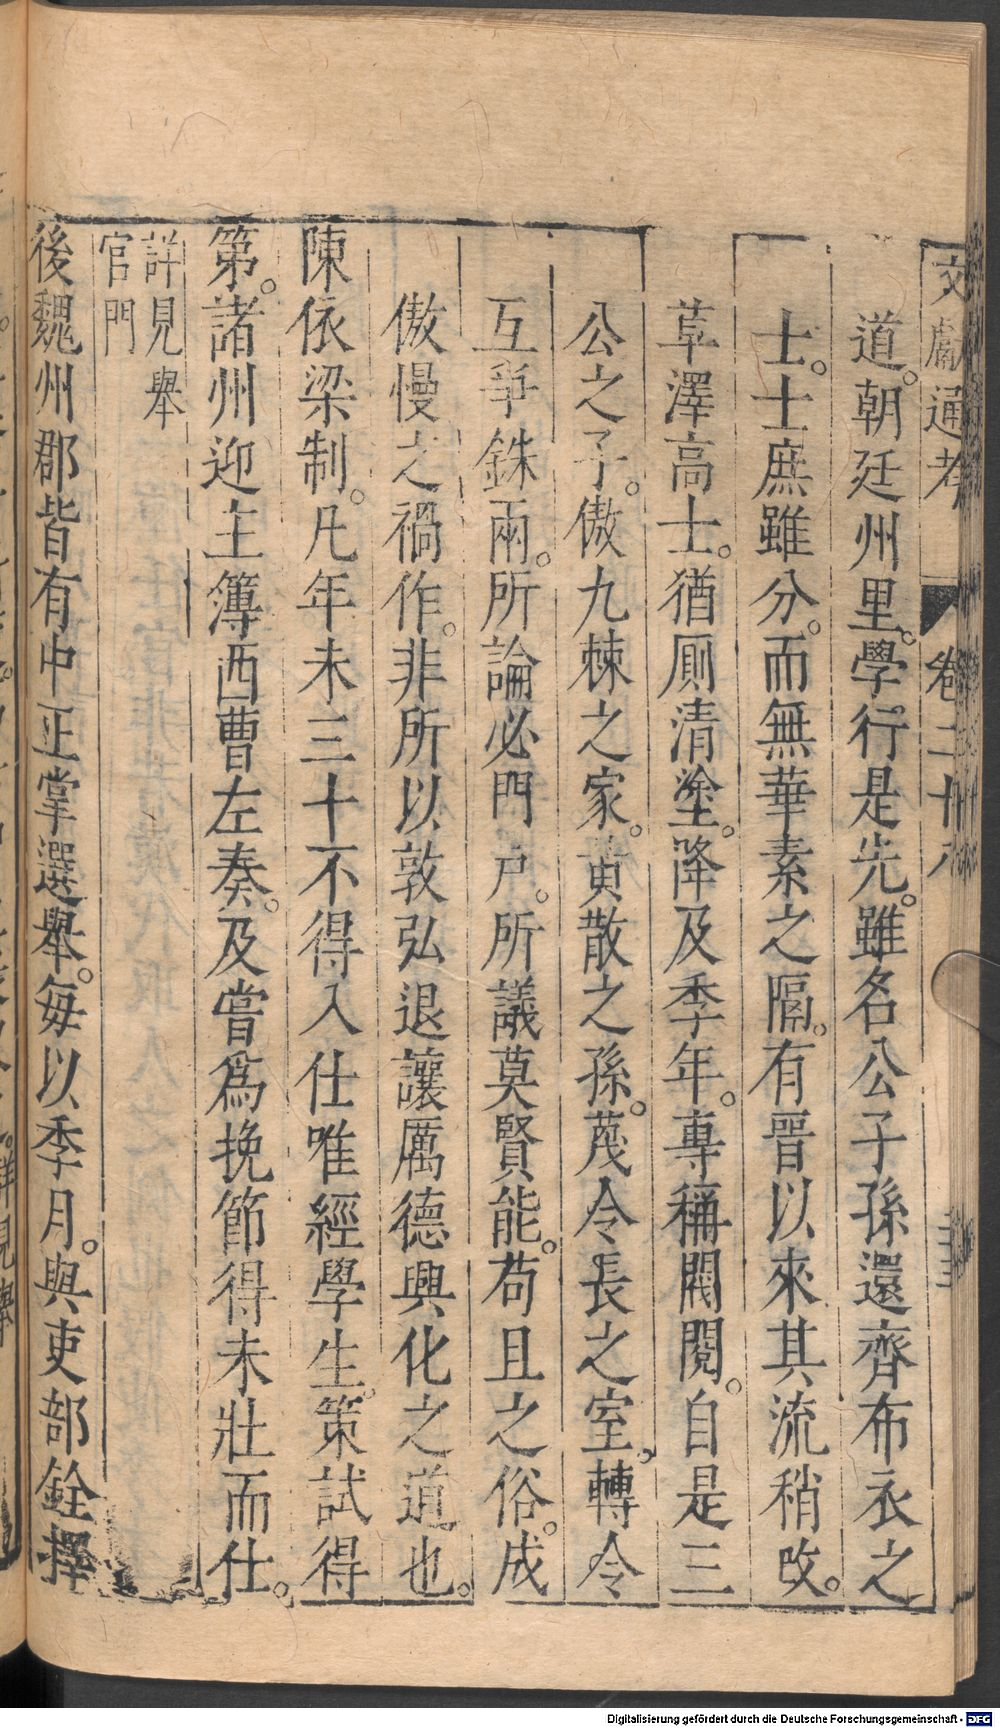 文獻通考 卷二十八
道。朝廷州里。學行是先。雖名公子孫還齊布衣之
士。士庶雖分。而無華素之隔。有晉以來其流稍改。
草澤高士。猶厠清塗。降及季年。專稱閥閱。自是三
公之子。傲九棘之家。黃散之孫。蔑令長之室。轉令
互爭銖兩。所論必門戶。所議莫賢能。苟且之俗。成
傲慢之禍作。非所以敦弘退讓厲德興化之道也。
陳依梁制。凡年未三十不得入仕唯經學生。策試得
第。諸州迎主簿西曹左奏。及嘗爲挽節得未壯而仕。
詳見舉
官門
後魏州郡皆有中正掌選舉。每以季月。與吏部銓擇
Digitalisierung gefördert durch die Deutsche Forschungsgemeinschaft - DFG